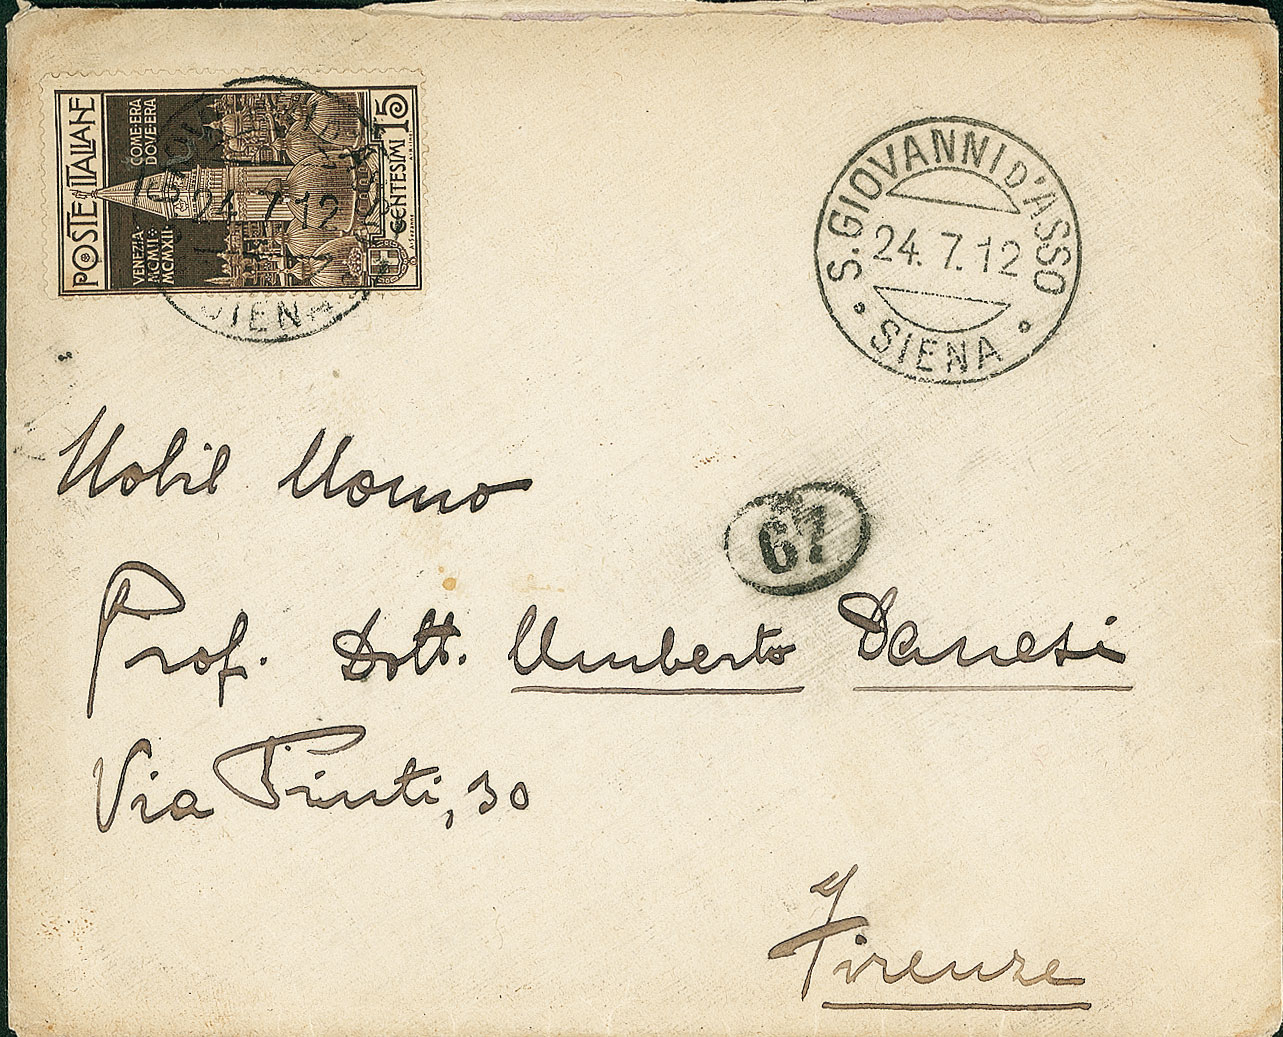 POSTE ITALIANE
COME·ERA
DOVE·ERA
VENEZIA·
MCMVII·
MCMXII·
CENTESIMI 15
24.7.12
SIENA
S. GIOVANNI D'ASSO
24. 7. 12
SIENA
67
Nobil Uomo
Prof. Dott. Umberto Danesi
Via Pinti, 30
Firenze